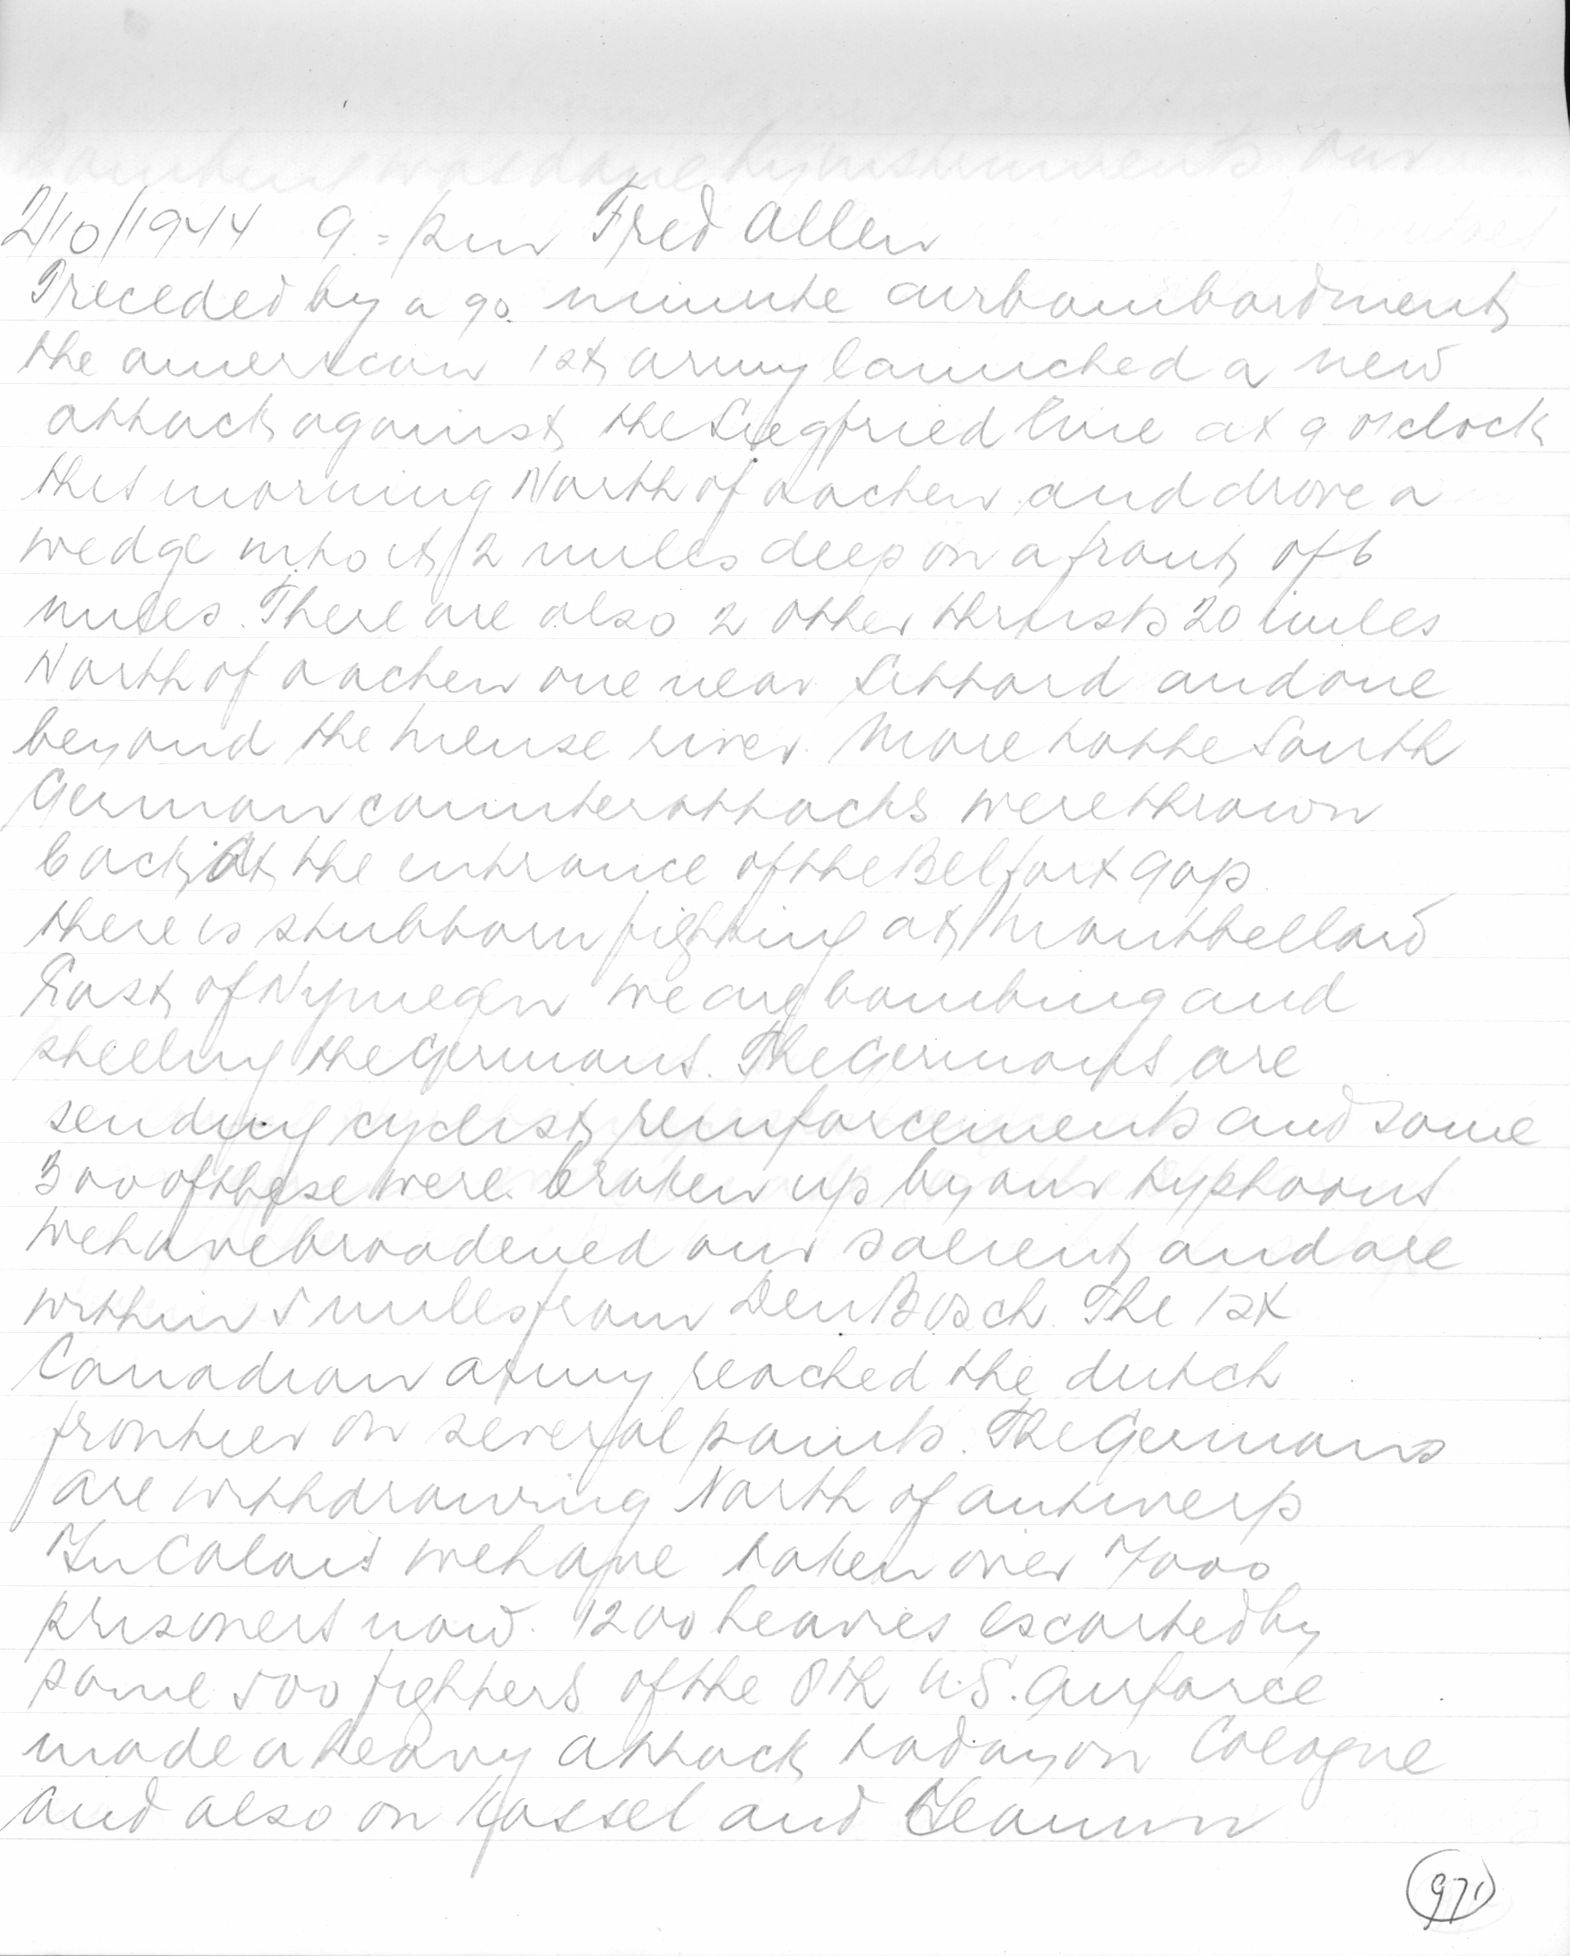 2/10/1944 9.= pm Fred Allen
Preceded by a 90 minute airbombardment
the american 1st army launched a new
attack against the Siegfried line at 9 o'clock
this morning North of aachen and drove a
wedge into it 2 miles deep on a front of 6
miles. There are also 2 other thrusts 20 miles
North of aachen one near Sittard and one
beyond the Meuse river. More to the South
German counterattacks were thrown
back. At the entrance of the Belfort gap
there is stubborn fighting at Montbellard
East of Nymegen we are bombing and
shelling the Germans. The Germans are
sending cyclist reinforcements and some
300 of these were broken up by our typhoons
We have broadened our salient and are
within 5 miles from Den Bosch. The 1st
Canadian army reached the dutch
frontier on several points. The Germans
are withdrawing North of antwerp
In Calais we have taken over 7000
prisoners now. 1200 heavies escorted by
some 500 fighters of the 8th U.S. airforce
made a heavy attack today on Cologne
and also on Kassel and Hamm
971